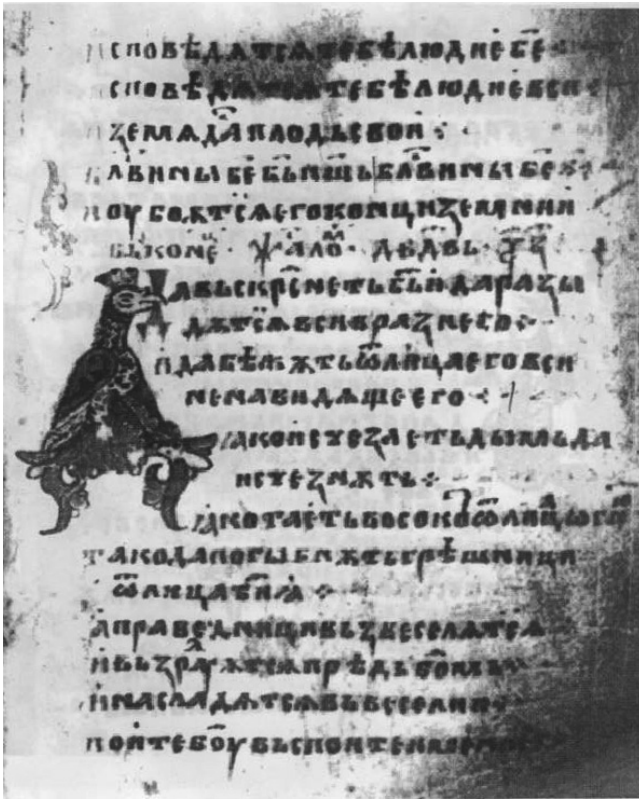 исповѣдѧтсѧтебѣлюдиебе
исповѣдѧтсѧтебѣлюдиевси
ꙁемлѣдаплодъсвои
блвинꙑбебъншъблвинꙑбе
иоубоѫтсѧегоконциꙁемлии
въконе ѱало дедвь ѯ҃ꙁ
давьскрснетьбъидараꙁꙑ
дѫтсѧвсивраꙁиего
идабѣжѫтьѿлицаеговси
ненавидѧщеего
ѣкоисчеꙁаетьдꙑмьда
исчеꙁнѫть
ѣкотаетьвосокоѿлицаогнѣ
такодапогꙑбнѫтьгрѣшници
ѿлицабиѣ
аправедницивьꙁвеселѧтсѧ
ивьꙁраⷣꙋѫтсѧпрѣдьбомь
инасладѧтсѧвьвеселии
поитебоувьспоите